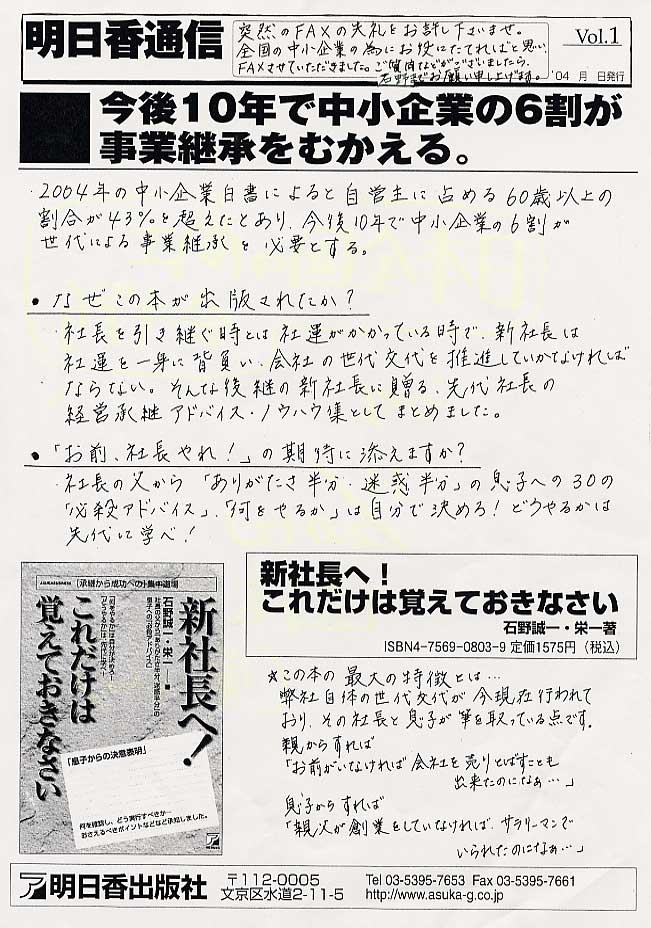 明日香通信
突然のFAXの失礼をお許し下さいませ。
全国の中小企業の為にお役にたてればと思い、
FAXさせていただきました。ご質問などがございましたら、
石野までお願い申し上げます。
Vol.1
'04 月 日発行
今後10年で中小企業の6割が
事業継承をむかえる。
・2004年の中小企業白書によると自営主に占める60歳以上の
割合が43%を超えたとあり、今後10年で中小企業の6割が
世代による事業継承を必要とする。
●なぜこの本が出版されたか?
・社長を引き継ぐ時とは社運がかかっている時で、新社長は
社運を一身に背負い、会社の世代交代を推進していかなければ
ならない。そんな後継の新社長に贈る、先代社長の
経営承継アドバイス・ノウハウ集としてまとめました。
●「お前、社長やれ!」の期待に添えますか?
・社長の父から「ありがたさ半分・迷惑半分」の息子への30の
「必殺アドバイス」、「何をやるか」は自分で決めろ!どうやるかは
先代に学べ!
[承継から成功への]集中道場
新社長へ!
これだけは
覚えておきなさい
石野誠一・栄一 著
社長の父から「ありがたさ半分、迷惑半分」の
息子への「必殺アドバイス」
「何をやるか」は自分が決めろ!
「どうやるか」は、先代に学べ!
「息子からの決意表明」
何を確認し、どう実行すべきか…
おさえるべきポイントなどなど承知しました。
新社長へ!
これだけは覚えておきなさい
石野誠一・栄一著
ISBN4-7569-0803-9 定価1575円(税込)
☆この本の最大の特徴とは…
弊社自体の世代交代が今現在行われて
おり、その社長と息子が筆を取っている点です。
親からすれば
「お前がいなければ会社を売りとばすことも
出来たのになぁ…」
息子からすれば
「親父が創業をしていなければ、サラリーマンで
いられたのになぁ…」
明日香出版社
〒112-0005
文京区水道2-11-5
Tel 03-5395-7653 Fax 03-5395-7661
http://www.asuka-g.co.jp